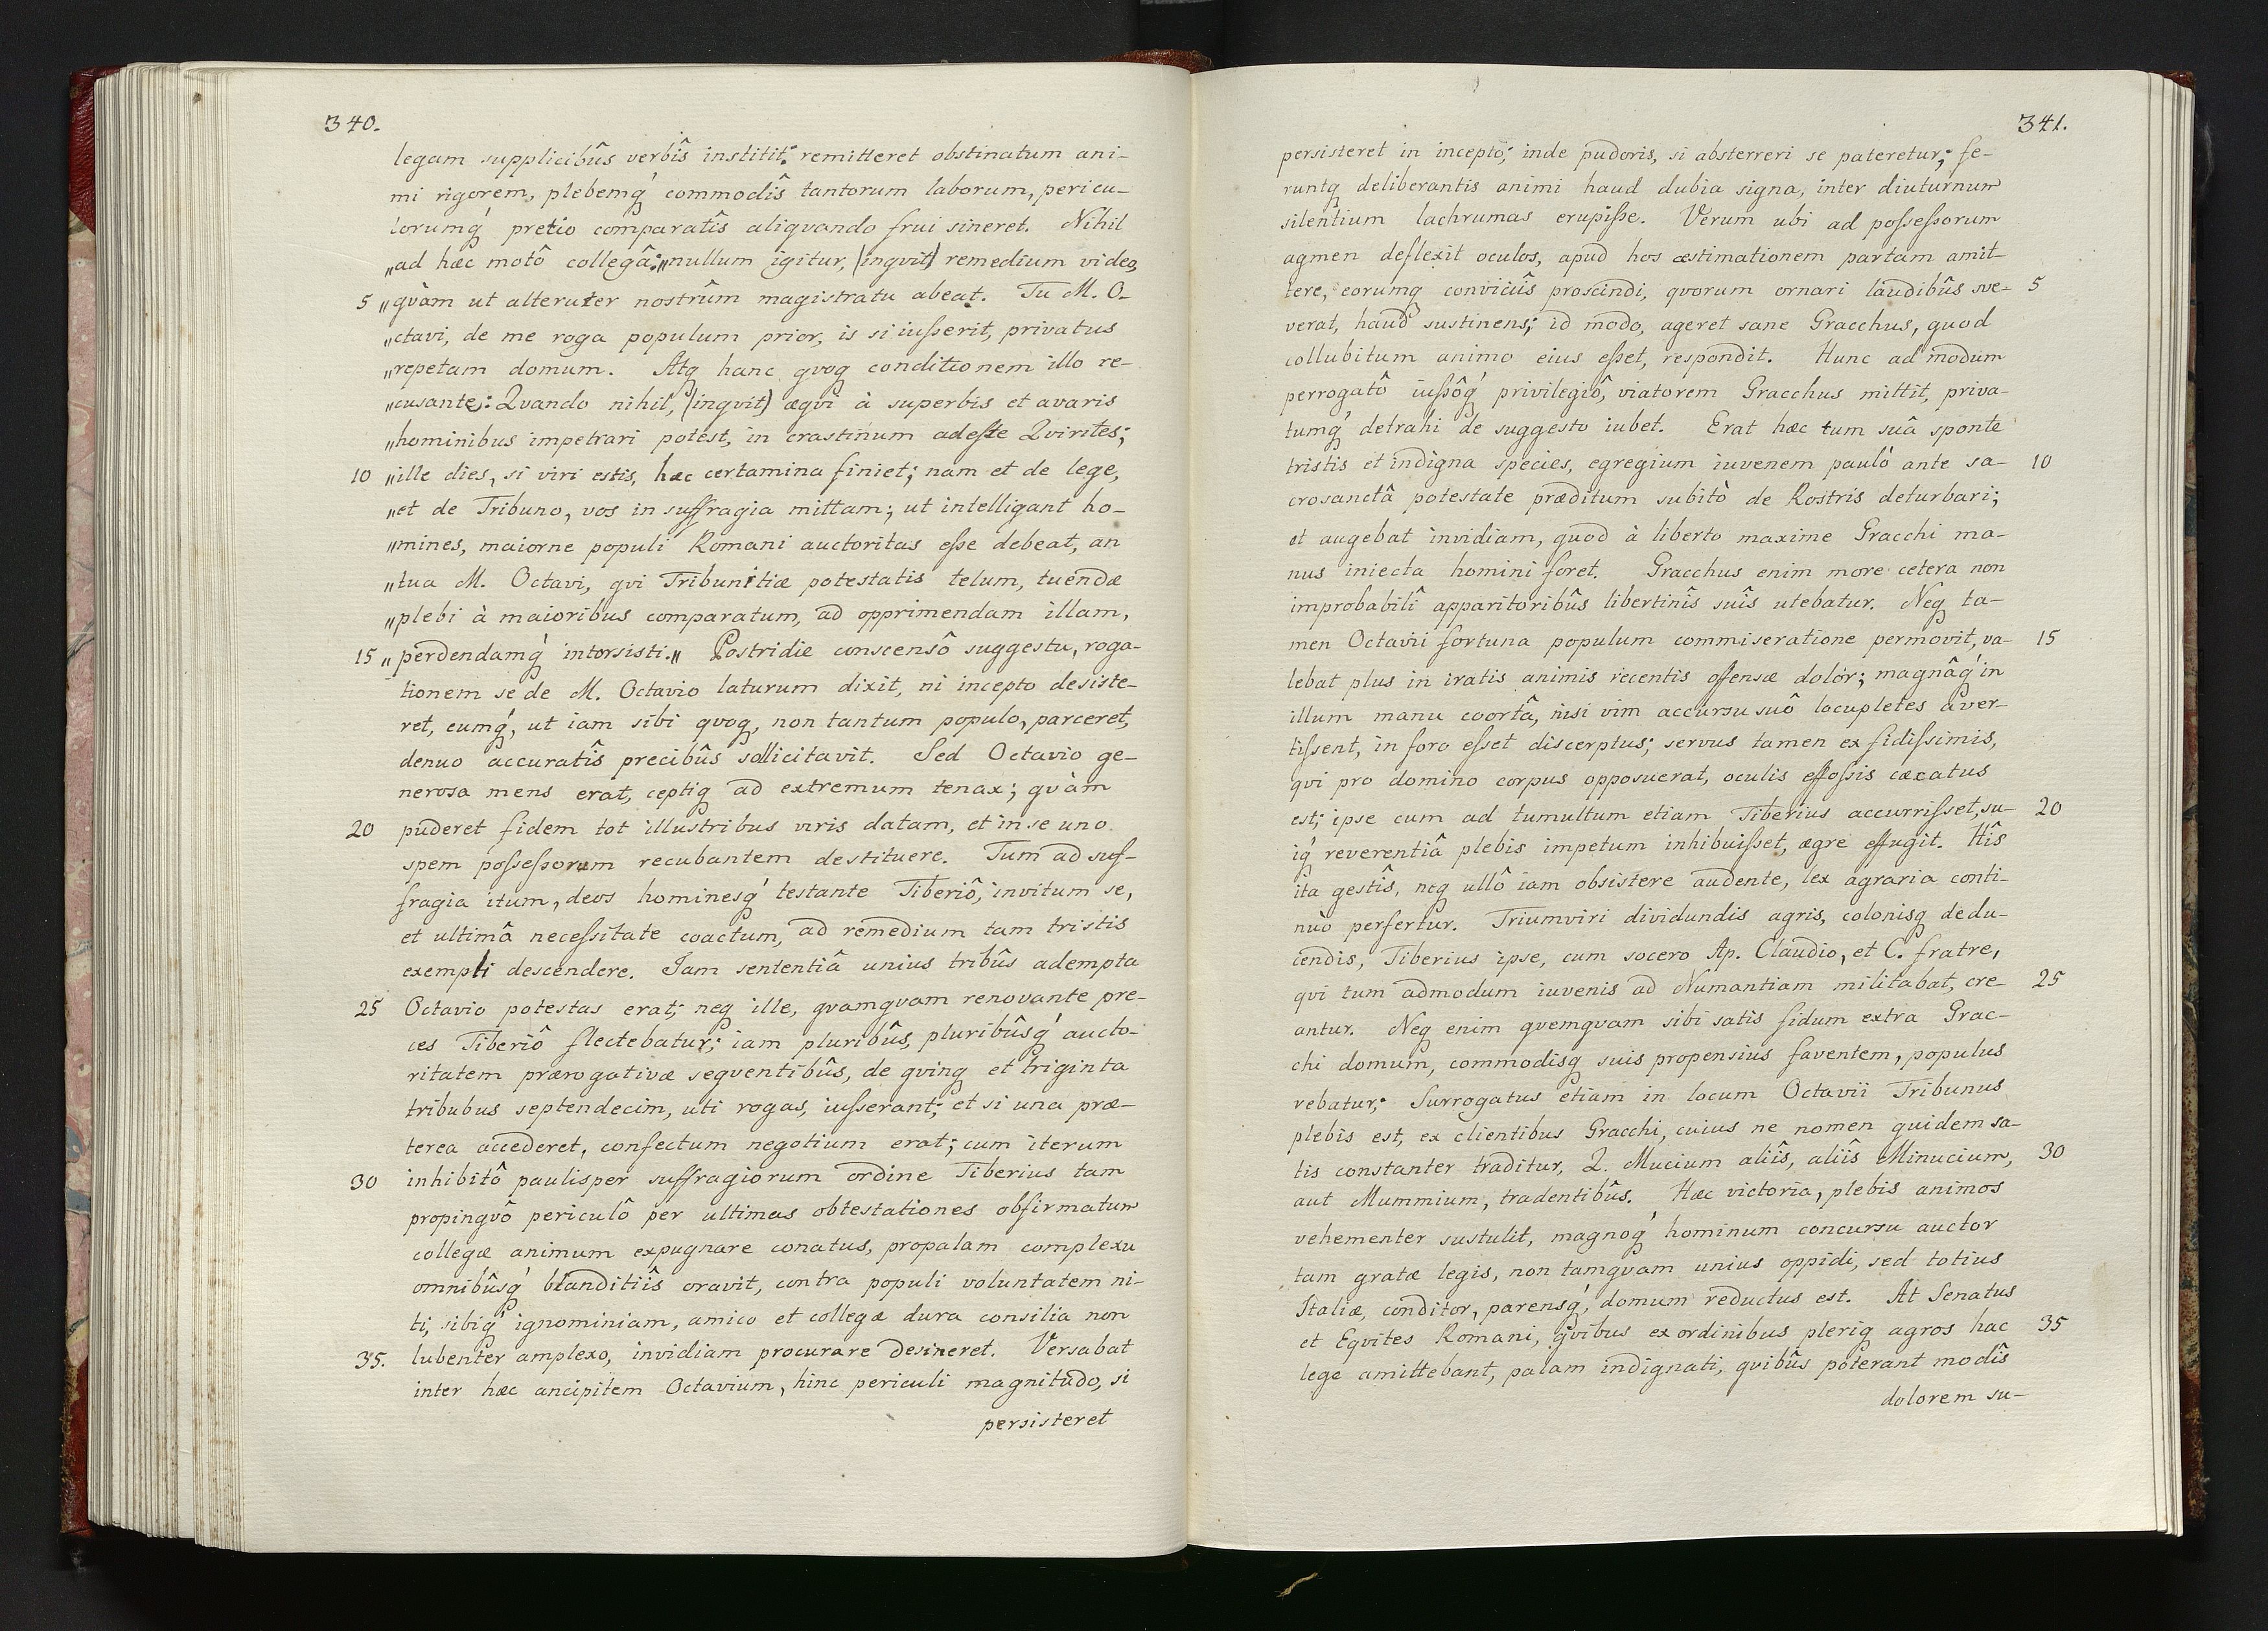 340.
legam supplicibûs verbîs institit: remitteret obstinatum ani-
mi rigorem, plebemq́ commodîs tantorum laborum, pericu-
lorumq́ pretio comparatîs aliqvando frui sineret. Nihil
„ad hæc motô collegâ: „nullum igitur, (inqvit) remedium video,
5 „qvàm ut alteruter nostrûm magistratu abeat. Tu M. O-
„ctavi, de me roga populum prior, is si iuſserit, privatus
„repetam domum. Atq hanc qvoq conditionem illo re-
„cusante: Qvando nihil, (inqvit) æqvi à superbis et avaris
„hominibus impetrari potest, in crastinum adeſte Qvirites;
10 „ille dies, si viri estis, hæc certamina finiet; nam et de lege,
„et de Tribuno, vos in suffragia mittam; ut intelligant ho-
„mines, maiorne populi Romani auctoritas eſse debeat, an
„tua M. Octavi, qvi Tribunitiæ potestatis telum, tuendæ
„plebi à maioribus comparatum, ad opprimendam illam,
15 „perdendamq́ intorsisti.„ Postridie conscensô suggestu, roga-
tionem se de M. Octavio laturum dixit, ni incepto desiste-
ret, eumq́, ut iam sibi qvoq, non tantum populo, parceret,
denuo accuratîs precibûs sollicitavit. Sed Octavio ge-
nerosa mens erat, ceptiq ad extremum tenax; qvàm
20 puderet fidem tot illustribus viris datam, et in se uno
spem poſseſsorum recubantem destituere. Tum ad suf-
fragia itum, deos hominesq́ testante Tiberiô, invitum se,
et ultimâ neceſsitate coactum, ad remedium tam tristis
exempli descendere. Iam sententiâ unius tribûs adempta
25 Octavio potestas erat; neq ille, qvamqvam renovante pre-
ces Tiberiô flectebatur; iam pluribûs, pluribûsq́ aucto-
ritatem prærogativæ seqventibûs, de qvinq et triginta
tribubus septendecim, uti rogas, iuſserant; et si una præ-
terea accederet, confectum negotium erat; cum iterum
30 inhibitô paulisper suffragiorum ordine Tiberius tam
propinqvô periculô per ultimas obtestationes obfirmatum
collegæ animum expugnare conatus, propalam complexu
omnibûsq́ blanditiîs oravit, contra populi voluntatem ni-
ti, sibiq́ ignominiam, amico et collegæ dura consilia non
35. lubenter amplexo, invidiam procurare desineret. Versabat
inter hæc ancipitem Octavium, hinc periculi magnitudo, si
persisteret
341.
persisteret in incepto; inde pudoris, si absterreri se pateretur; fe-
runtq deliberantis animi haud dubia signa, inter diuturnum
silentium lachrumas erupiſse. Verum ubi ad poſseſsorum
agmen deflexit oculos, apud hos æstimationem partam amit-
tere, eorumq conviciîs proscindi, qvorum ornari laudibûs sve- 5
verat, haud sustinens; id modo, ageret sane Gracchus, quod
collubitum animo eius eſset, respondit. Hunc ad modum
perrogatô iuſsôq́ privilegiô, viatorem Gracchus mittit, priva-
tumq́ detrahi de suggesto iubet. Erat hæc tum suâ sponte
tristis et indigna species, egregium iuvenem paulò ante sa- 10
crosanctâ potestate præditum subitò de Rostris deturbari;
et augebat invidiam, quod à liberto maxime Gracchi ma-
nus iniecta homini foret. Gracchus enim more cetera non
improbabilî apparitoribûs libertinîs suîs utebatur. Neq ta-
men Octavii fortuna populum commiseratione permovit, va- 15
lebat plus in iratis animis recentis offensæ dolor; magnâq́ in
illum manu coortâ, nisi vim accursu suô locupletes aver-
tiſsent, in foro eſset discerptus; servus tamen ex fidiſsimis,
qvi pro domino corpus opposuerat, oculis effoſsis cæcatus
est; ipse cum ad tumultum etiam Tiberius accurriſset, su- 20
iq́ reverentiâ plebis impetum inhibuiſset, ægre effugit. Hîs
ita gestîs, neq ullô iam obsistere audente, lex agraria conti-
nuò perfertur. Triumviri dividundis agris, colonisq dedu-
cendis, Tiberius ipse, cum socero Ap. Claudio, et C. fratre,
qvi tum admodum iuvenis ad Numantiam militabat, cre- 25
antur. Neq enim qvemqvam sibi satis fidum extra Grac-
chi domum, commodisq suis propensius faventem, populus
rebatur; Surrogatus etiam in locum Octavii Tribunus
plebis est, ex clientibus Gracchi, cuius ne nomen quidem sa-
tis constanter traditur, Q. Mucium aliîs, aliîs Minucium, 30
aut Mummium, tradentibûs. Hæc victoria, plebis animos
vehementer sustulit, magnoq́ hominum concursu auctor
tam gratæ legis, non tamqvam unius oppidi, sed totius
Italiæ, conditor, parensq́, domum reductus est. At Senatus
et Eqvites Romani, qvibus ex ordinibus pleriq agros hac 35
lege amittebant, palam indignati, qvibûs poterant modîs
dolorem su-